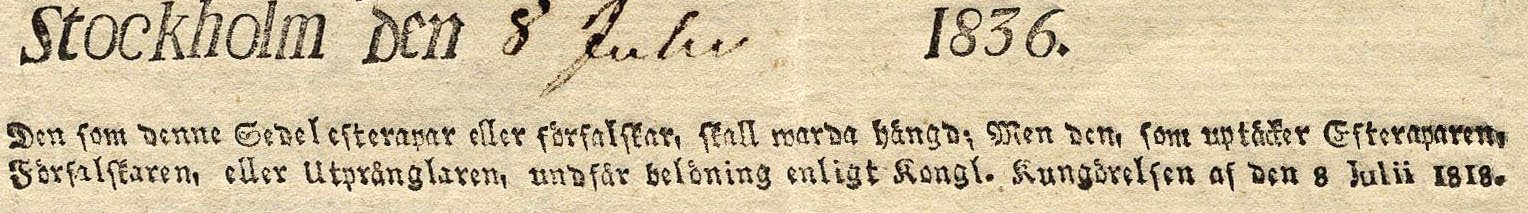 Stockholm den 8 Julii 1836.
Den som denne Sedel efterapar eller förfalskar, skall warda hängd; Men den, som uptäcker Efteraparen,
Förfalskaren, eller Utpränglaren, undfår belöning enligt Kongl. Kungörelsen af den 8 Julii 1818.